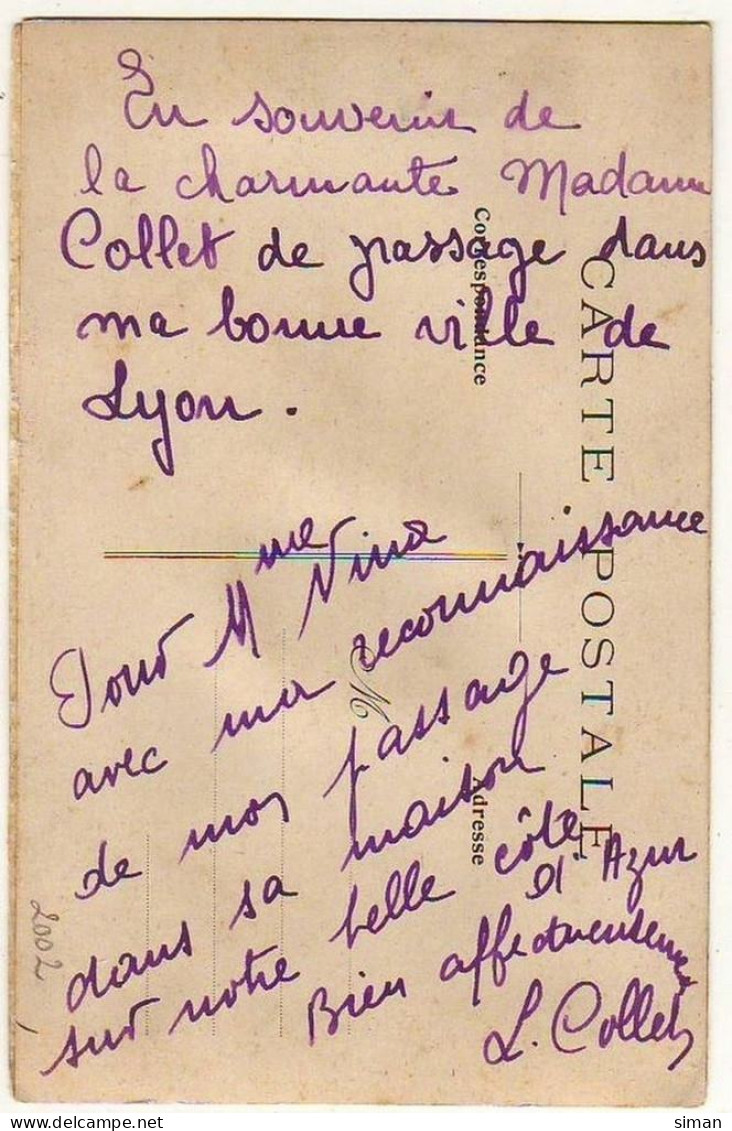 En souvenir de
la charmante Madame
Collet de passage dans
ma bonne ville de
Lyon.
Pour Mme Nina
avec ma reconnaissance
de mon passage
dans sa maison
sur notre belle côte
d'Azur
Bien affectueusement
L. Collet
CARTE POSTALE
Correspondance
M
Adresse
2002
siman